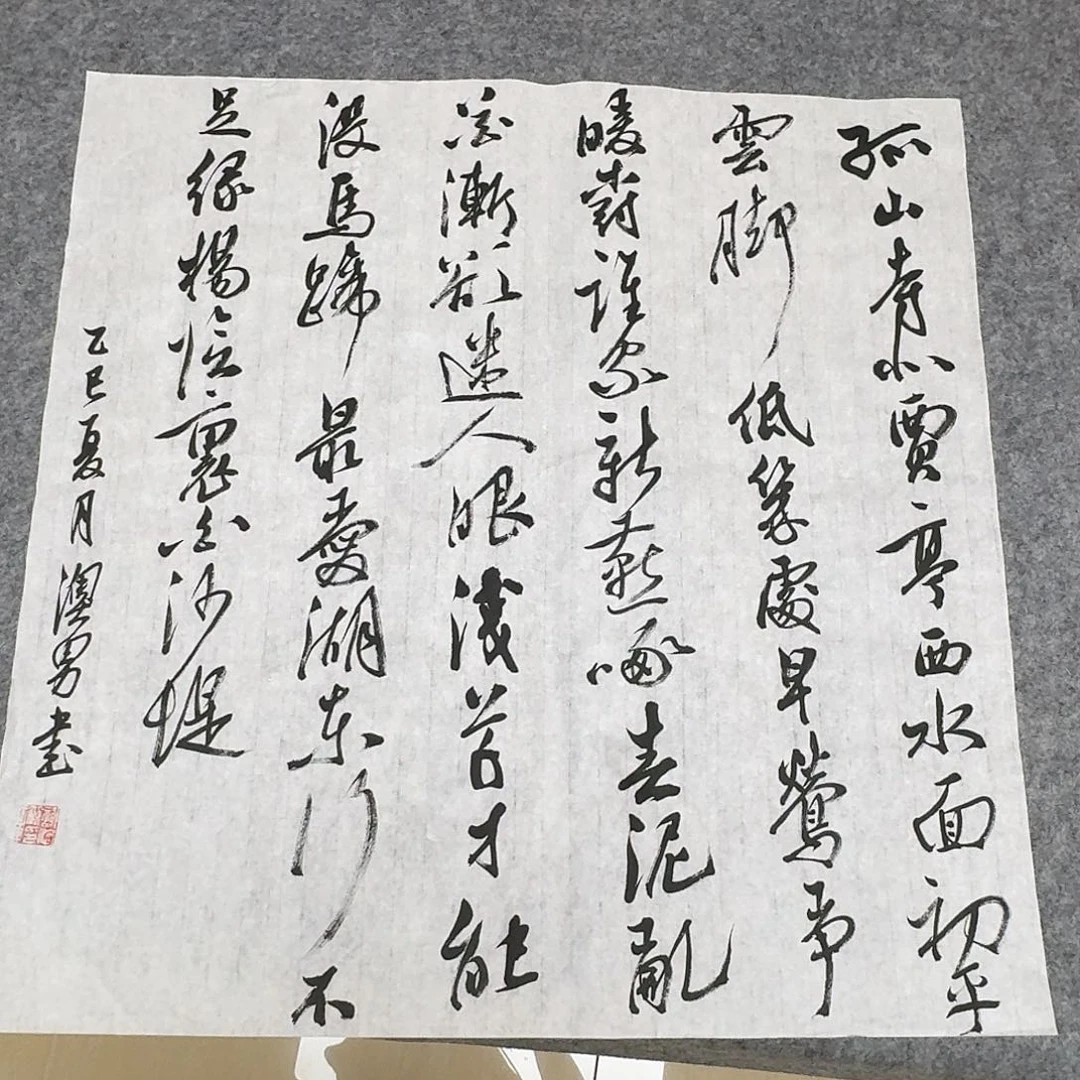 孤山寺北賈亭西水面初平
雲脚低幾處早鶯爭
暖樹誰家新燕啄春泥亂
花漸欲迷人眼淺草才能
沒馬蹄最愛湖東行不
足綠楊陰裏白沙堤
乙巳夏月澳男書